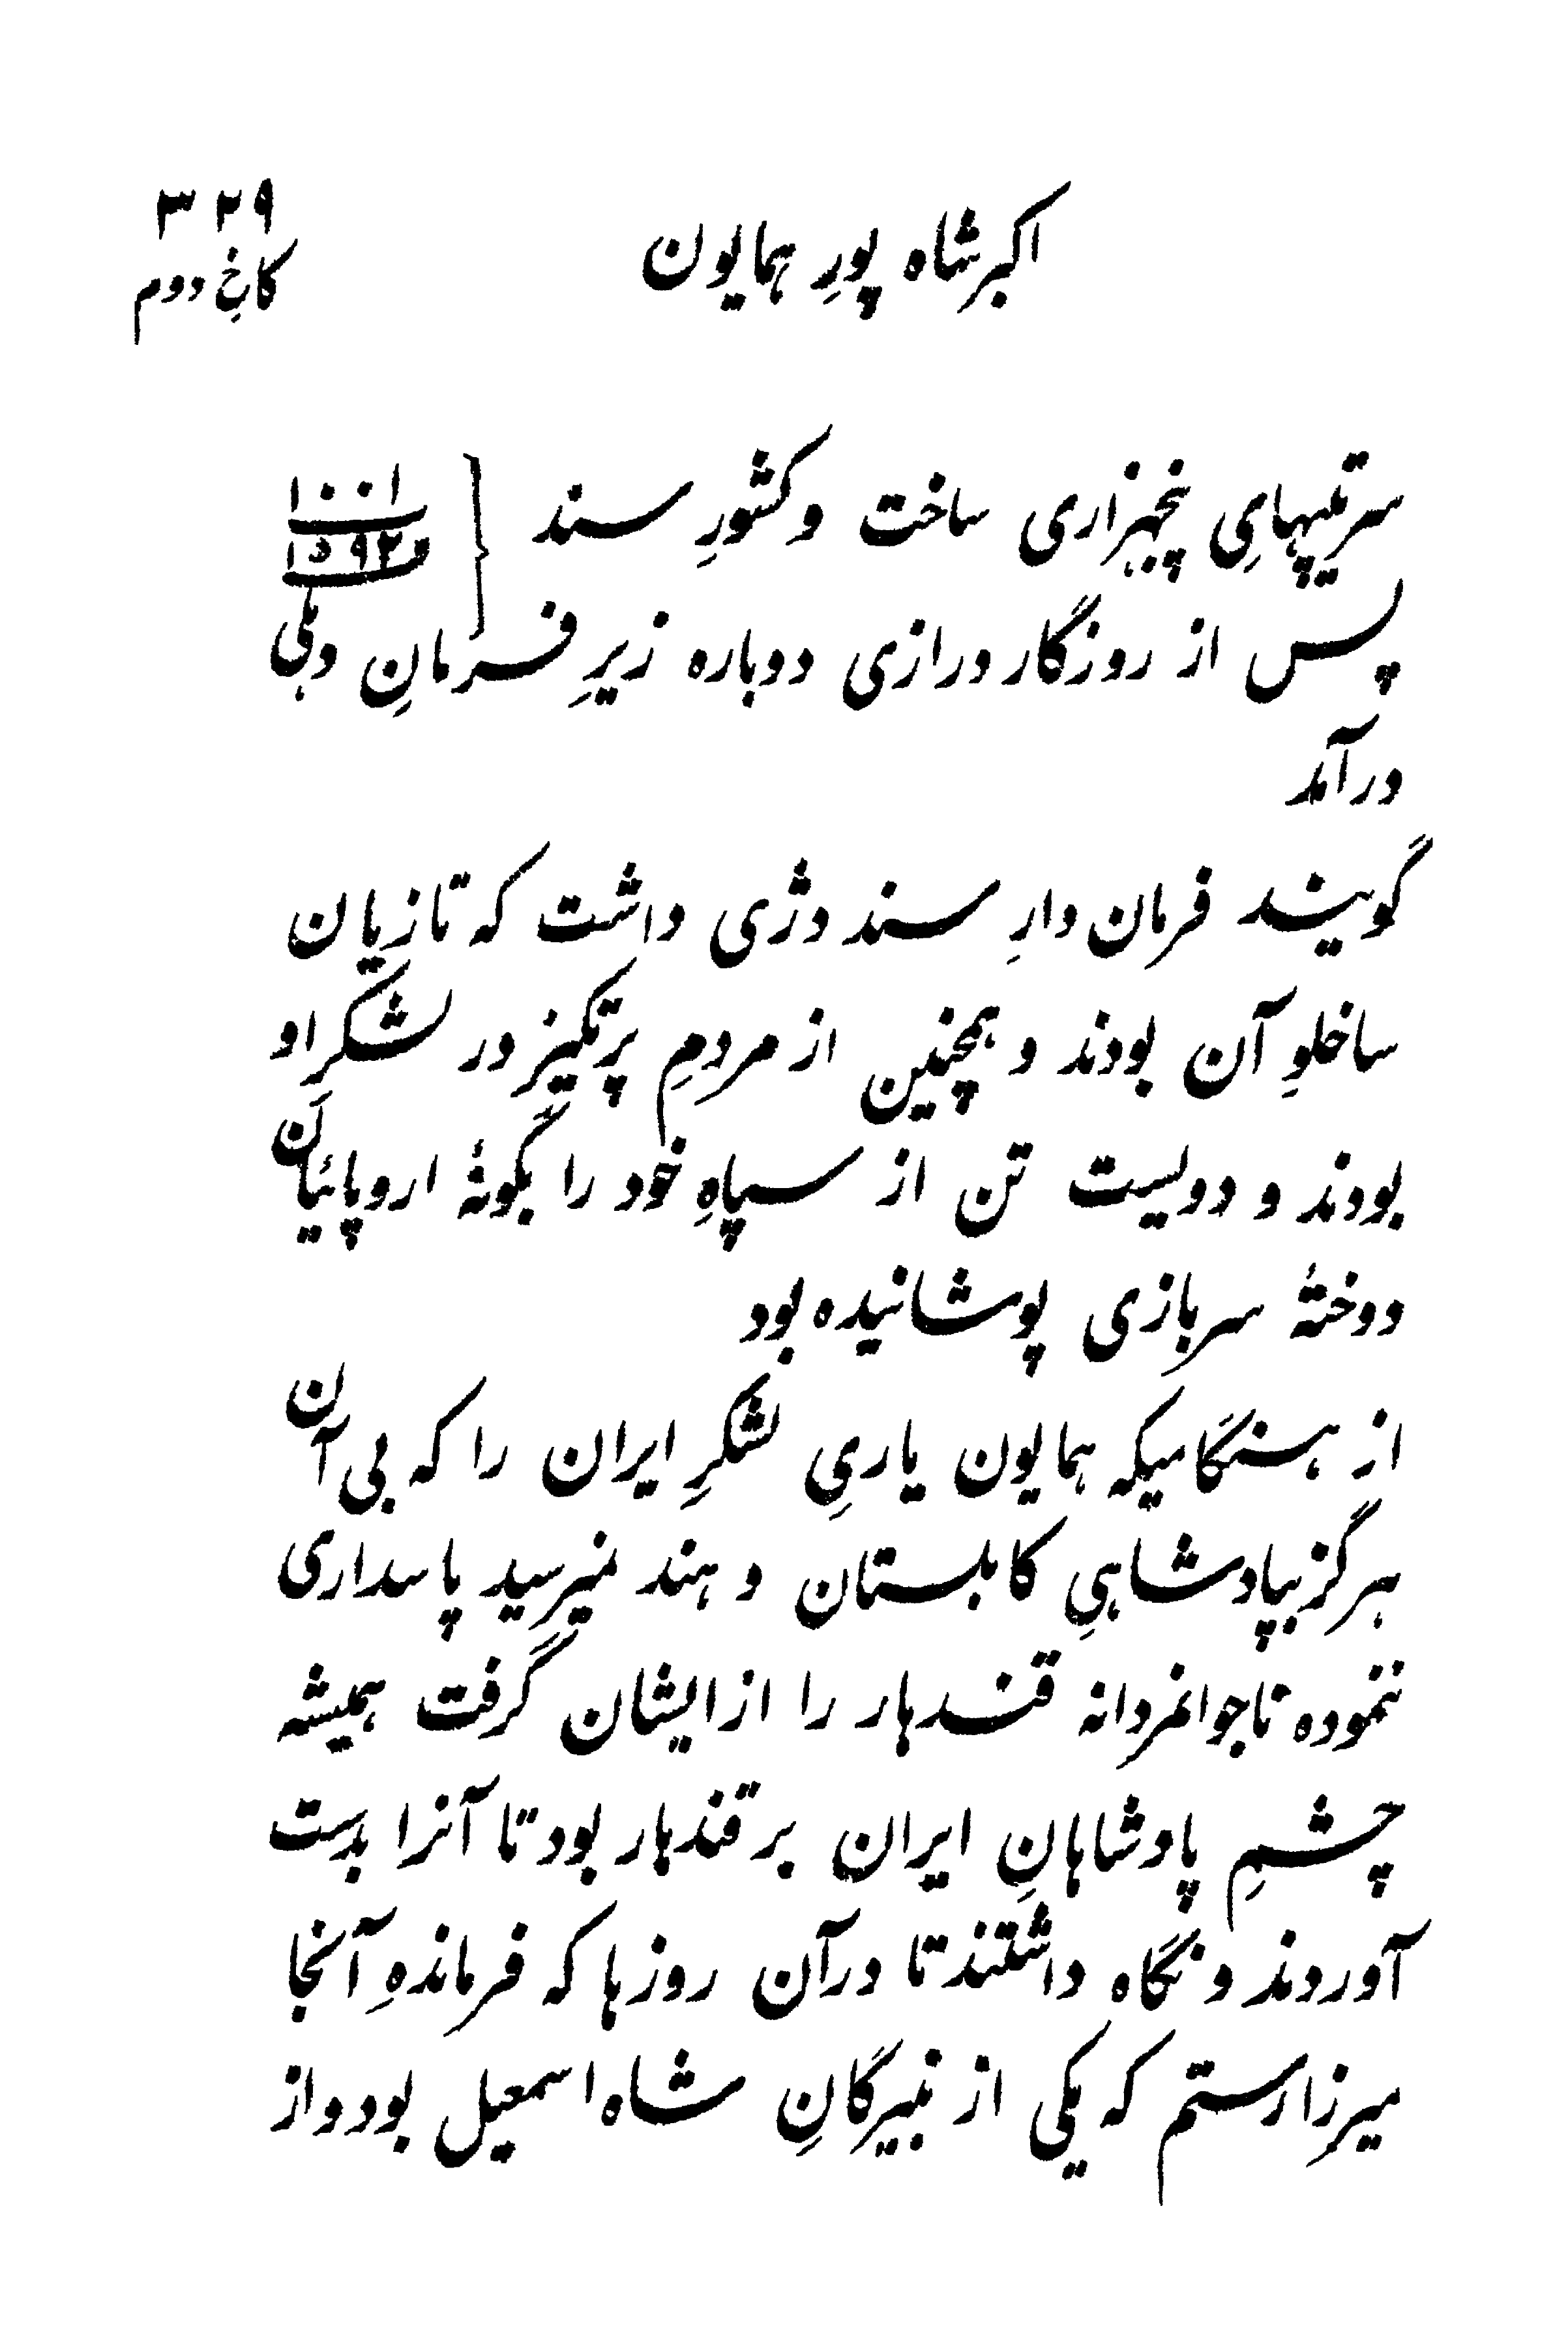 ۳۲۹
اکبرشاه پورِ همایون
کاخ دوم
سرتیپهایِ پنجهزاری ساخت و کشورِ سند } ۱۰۰۱
۱۵۹۲م
پس از روزگار درازی دوباره زیرِ فرمانِ دهلی
درآمد
گویند فرمان دارِ سند دژی داشت که تازیان
ساخلوِ آن بودند و همچنین از مردمِ پرتگیز در لشکرِ او
بودند و دویست تن از سپاهِ خود را بگونهٔ اروپائیان
دوختهٔ سربازی پوشانیده بود
از هنگامیکه همایون یاریِ لشکرِ ایران را که بی آن
هرگز بپادشاهیِ کابلستان و هند نمیرسید پاسداری
ننموده ناجوانمردانه قندهار را از ایشان گرفت همیشه
چشمِ پادشاهانِ ایران بر قندهار بود تا آنرا بدست
آوردند و نگاه داشتند تا درآن روزها که فرماندهِ آنجا
میرزا رستم که یکی از نبیرگانِ شاه اسمعیل بود و از